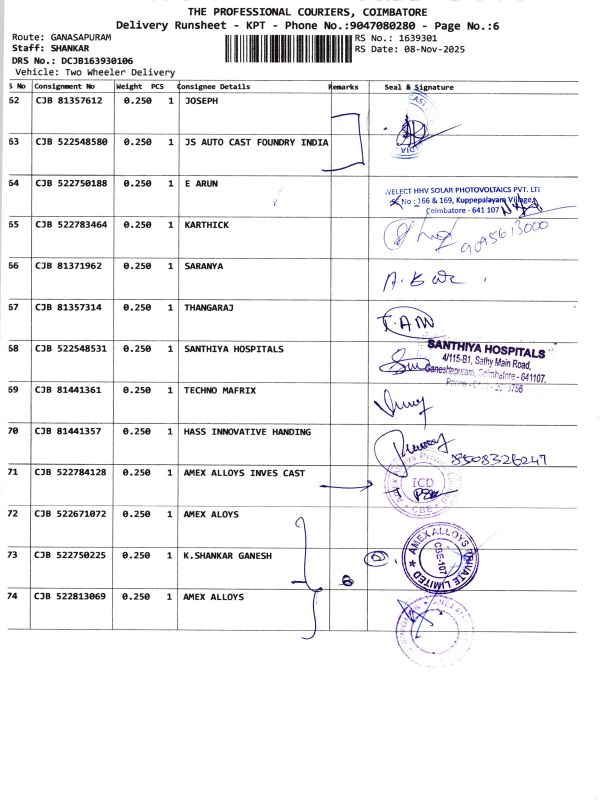 THE PROFESSIONAL COURIERS, COIMBATORE
Delivery Runsheet - KPT - Phone No.:9047080280 - Page No.:6
Route: GANASAPURAM
RS No.: 1639301
Staff: SHANKAR
RS Date: 08-Nov-2025
DRS No.: DCJB163930106
Vehicle: Two Wheeler Delivery
S No Consignment No Weight PCS Consignee Details Remarks Seal & Signature
62 CJB 81357612 0.250 1 JOSEPH
63 CJB 522548580 0.250 1 JS AUTO CAST FOUNDRY INDIA
64 CJB 522750188 0.250 1 E ARUN
VELECT HHV SOLAR PHOTOVOLTAICS PVT. LTD
No : 166 & 169, Kuppepalayam Village,
Coimbatore - 641 107
65 CJB 522783464 0.250 1 KARTHICK
66 CJB 81371962 0.250 1 SARANYA
67 CJB 81357314 0.250 1 THANGARAJ
68 CJB 522548531 0.250 1 SANTHIYA HOSPITALS
SANTHIYA HOSPITALS
4/115-B1, Sathy Main Road,
Ganeshapuram, Coimbatore - 641107.
69 CJB 81441361 0.250 1 TECHNO MAFRIX
70 CJB 81441357 0.250 1 HASS INNOVATIVE HANDING
8508326247
71 CJB 522784128 0.250 1 AMEX ALLOYS INVES CAST
ICD
CBE
72 CJB 522671072 0.250 1 AMEX ALOYS
73 CJB 522750225 0.250 1 K.SHANKAR GANESH
AMEX ALLOYS PRIVATE LIMITED
CBE-107
74 CJB 522813069 0.250 1 AMEX ALLOYS